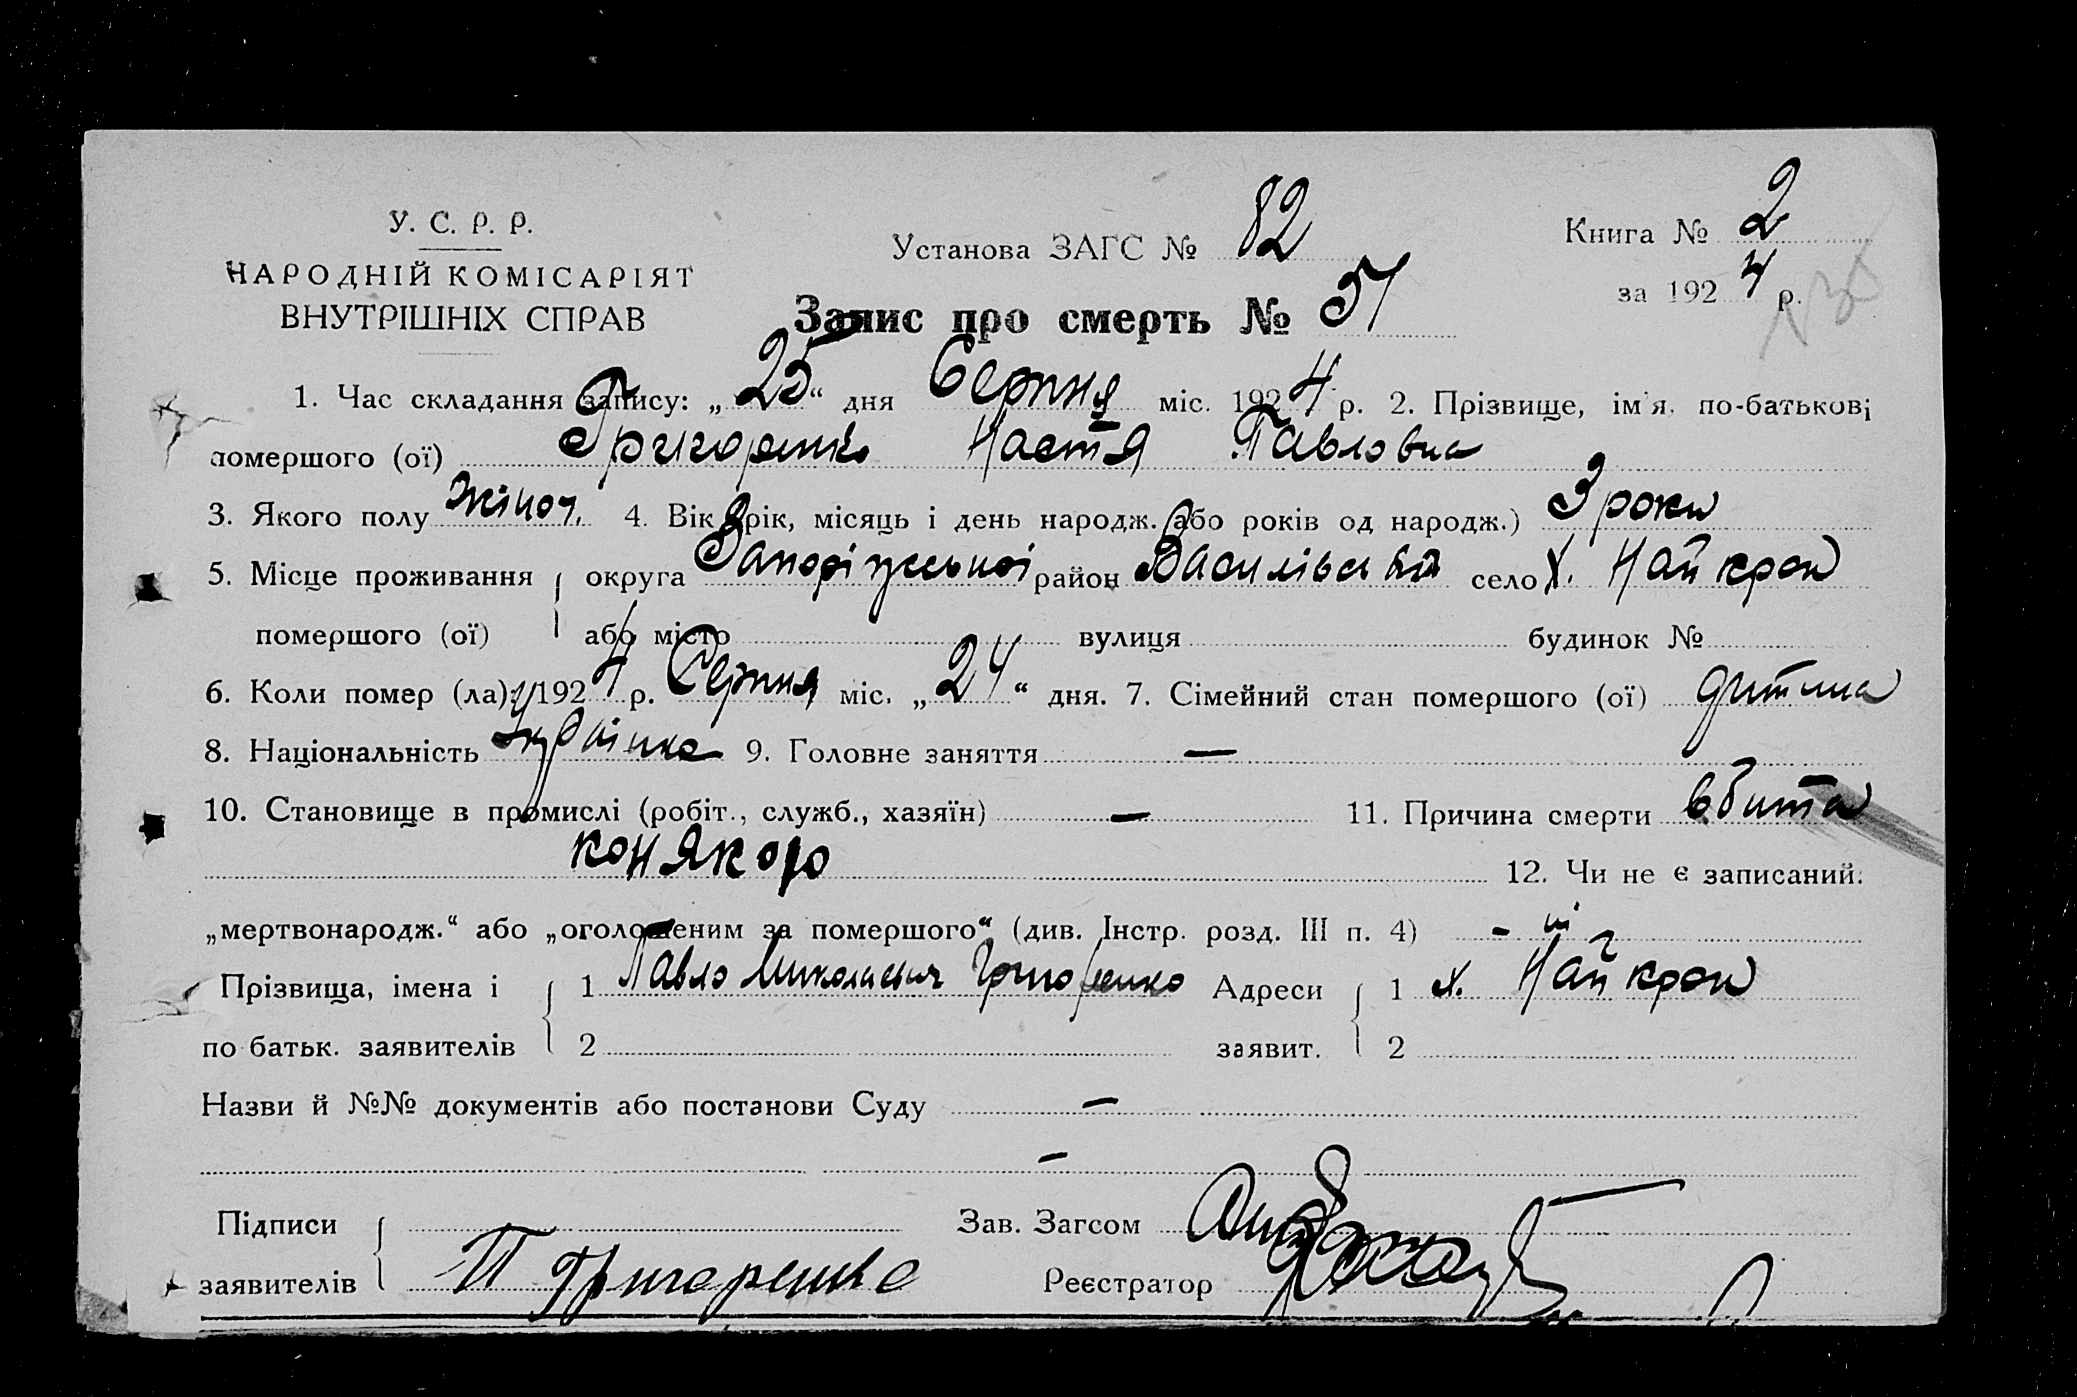 У. С. Р. Р.
НАРОДНІЙ КОМІСАРІЯТ
ВНУТРІШНІХ СПРАВ
Установа ЗАГС № 82
Книга № 2
за 1924 р.
Запис про смерть № 51
1. Час складання запису: „25“ дня Серпня міс. 1924 р. 2. Прізвище, ім'я, по-батькові
помершого (ої) Григоренко Настя Павловна
3. Якого полу жіноч. 4. Вік (рік, місяць і день народж. або років од народж.) 3 роки
5. Місце проживання округа Запоріжської район Василівськ село х. Найкрон
помершого (ої) або місто вулиця будинок №
6. Коли помер (ла): 1924 р. Серпня міс. „24“ дня. 7. Сімейний стан помершого (ої) дитина
8. Національність Українка 9. Головне заняття —
10. Становище в промислі (робіт., служб., хазяїн) — 11. Причина смерти вбита
конякою
12. Чи не є записаний:
„мертвонародж.“ або „оголошеним за помершого“ (див. Інстр. розд. III п. 4) - ні
Прізвища, імена і 1 Павло Миколаевич Григоренко Адреси 1 х. Найкрон
по батьк. заявителів 2 заявит. 2
Назви й №№ документів або постанови Суду —
—
Підписи Зав. Загсом
заявителів П Григоренко Реєстратор